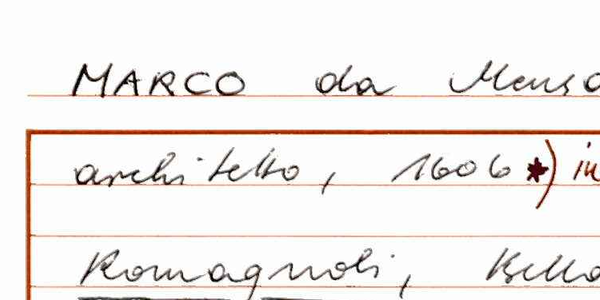 MARCO da Mensa
architetto, 1606 *) in
Romagnoli, Bella